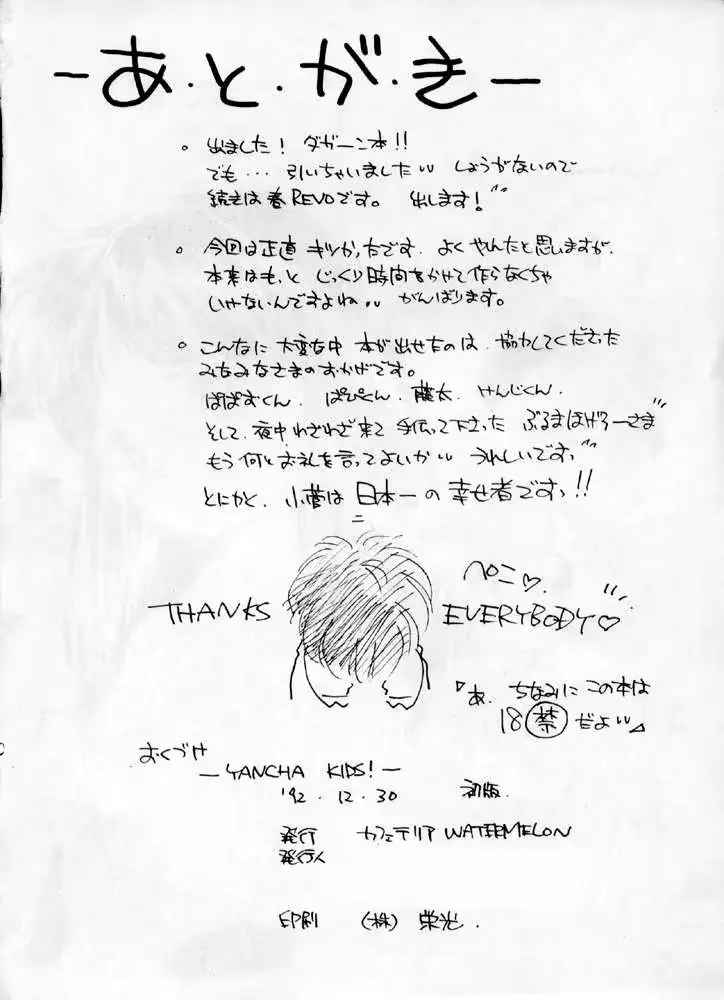 -あ・と・が・き-
。出ました! ダガーン本!!
でも… 引いちゃいました しょうがないので
続きは春REVOです。 出します!
。今回は正直 キツかったです. よく やんたと思いますが.
本来はもっと じっくり時間をかせて作らなくちゃ
いけないんですよね がんばります。
。こんなに 大変な中 本が出せたのは. 協力してくださった
みなみなさまのおかげです。
ぱぱすくん. ぱぴくん. 藤太. けんじくん.
そして. 夜中わざわざ来て 手伝って下さった ぶるまほげろーさま
もう何とお礼を言ってよいか うれしいですっ
とにかく. 小菅は 日本一の幸せ者ですっ!!
ペこ♡.
THANKS EVERYBODY♡
「あ. ちなみに この本は
18禁だよ」
おくづけ
-YANCHA KIDS!-
'92.12.30 初版.
発行 カフェテリア WATERMELON
発行人
印刷 (株) 栄光.